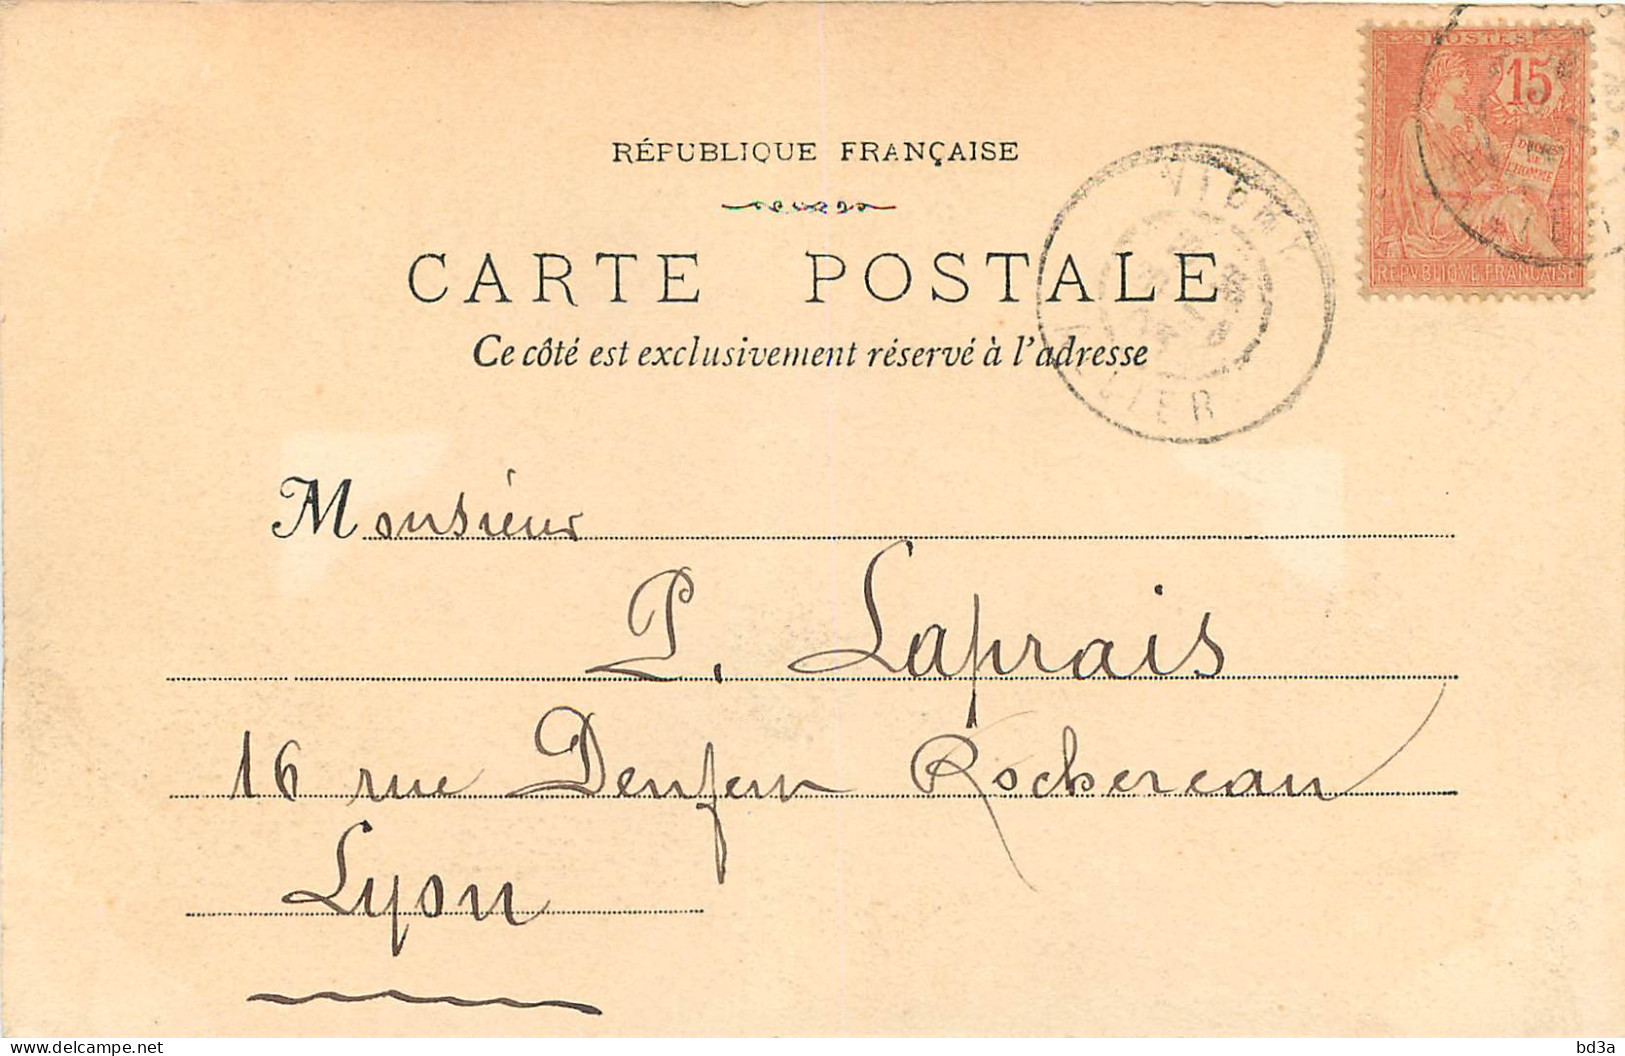 POSTES
15
DROITS
DE
L'HOMME
REPVBLIQVE FRANÇAISE
RÉPUBLIQUE FRANÇAISE
CARTE POSTALE
Ce côté est exclusivement réservé à l'adresse
ALLIER
Monsieur
P. Laprais
16 rue Denfern Rochereau
Lyon
delcampe.net
bd3a